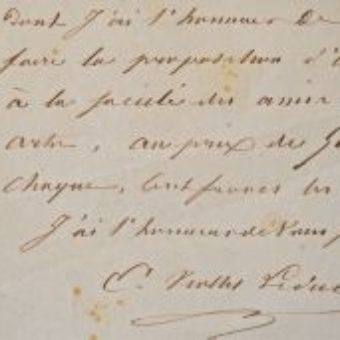 dont j'ai l'honneur de
faire la proposition d'
à la société des amis
arts, au prix de
chaque, Cent francs les
J'ai l'honneur de vous
C. Viollet Leduc